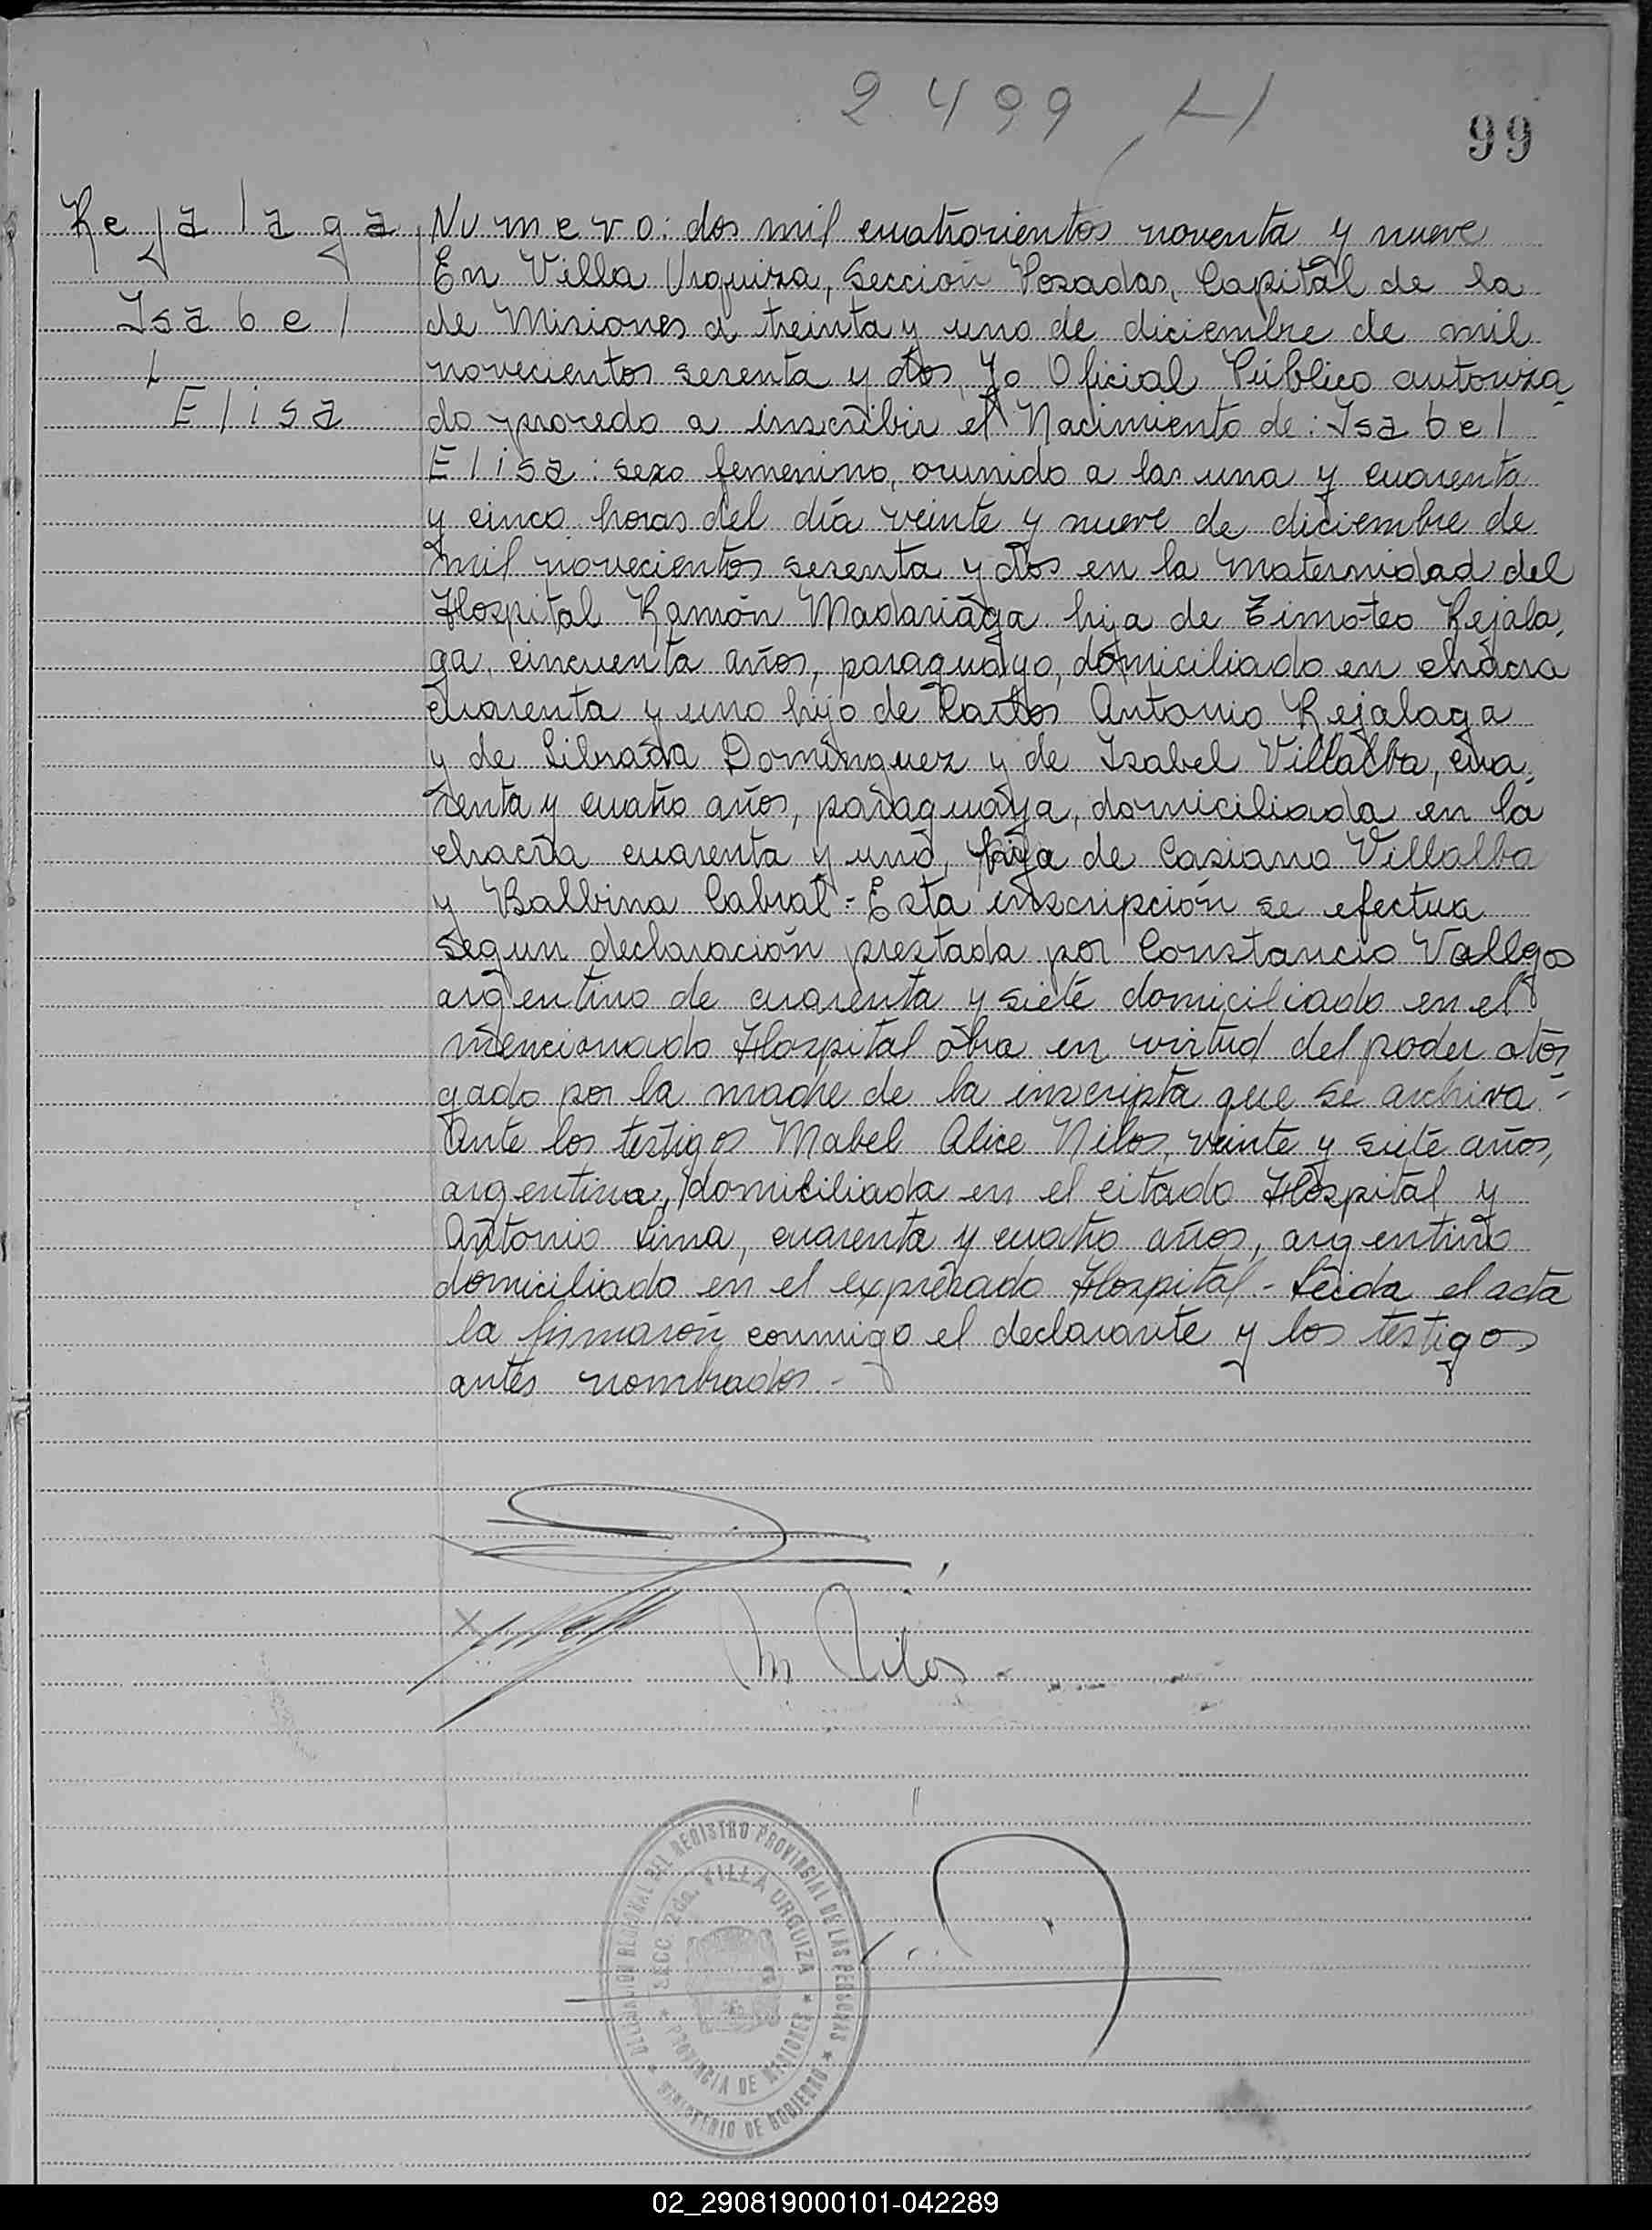 2499
99
Rejalaga
Isabel
Elisa
Numero: dos mil cuatrocientos noventa y nueve
En Villa Urquiza, Sección Posadas, Capital de la
de Misiones a treinta y uno de diciembre de mil
novecientos sesenta y dos, Yo Oficial Público autoriza
do procedo a inscribir el Nacimiento de: Isabel
Elisa: sexo femenino, ocurrido a las una y cuarenta
y cinco horas del día veinte y nueve de diciembre de
mil novecientos sesenta y dos en la maternidad del
Hospital Ramón Madariága hija de Timoteo Rejala,
ga, cincuenta años, paraguayo, domiciliado en chacra
cuarenta y uno hijo de Carlos Antonio Rejalaga
y de Librada Domínguez y de Isabel Villalba, cua,
renta y cuatro años, paraguaya, domiciliada en la
chacra cuarenta y uno, hija de Casiano Villalba
y Balbina Cabral - Esta inscripción se efectua
segun declaración prestada por Constancio Vallejos
argentino de cuarenta y siete domiciliado en el
mencionado Hospital obra en virtud del poder otor
gado por la madre de la inscripta que se archiva. -
Ante los testigos Mabel Alice Nilos, veinte y siete años,
argentina, domiciliada en el citado Hospital y
Antonio Lima, cuarenta y cuatro años, argentino
domiciliado en el expresado Hospital - Leida el acta
la firmaron conmigo el declarante y los testigos
antes nombrados -
M Nilos
DELEGACION REGIONAL DEL REGISTRO PROVINCIAL DE LAS PERSONAS
SECC. 2da. VILLA URQUIZA
PROVINCIA DE MISIONES
MINISTERIO DE GOBIERNO
02_290819000101-042289